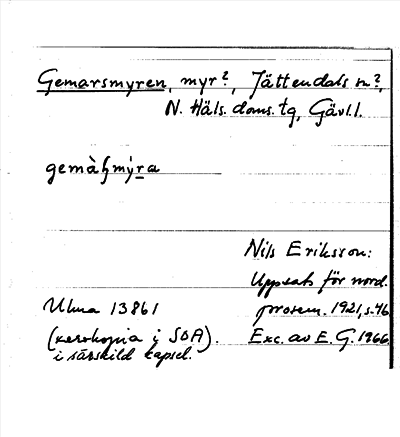 Gemarsmyren, myr?, Jättendals sn?,
N. Häls. doms. tg, Gävl.l.
gemàꞕmy̱ra
Nils Eriksson:
Uppsats för nord.
Ulma 13861 prosem. 1921, s. 46
(xerokopia i SOA). Exc. av E. G. 1966
i särskild kapsel.